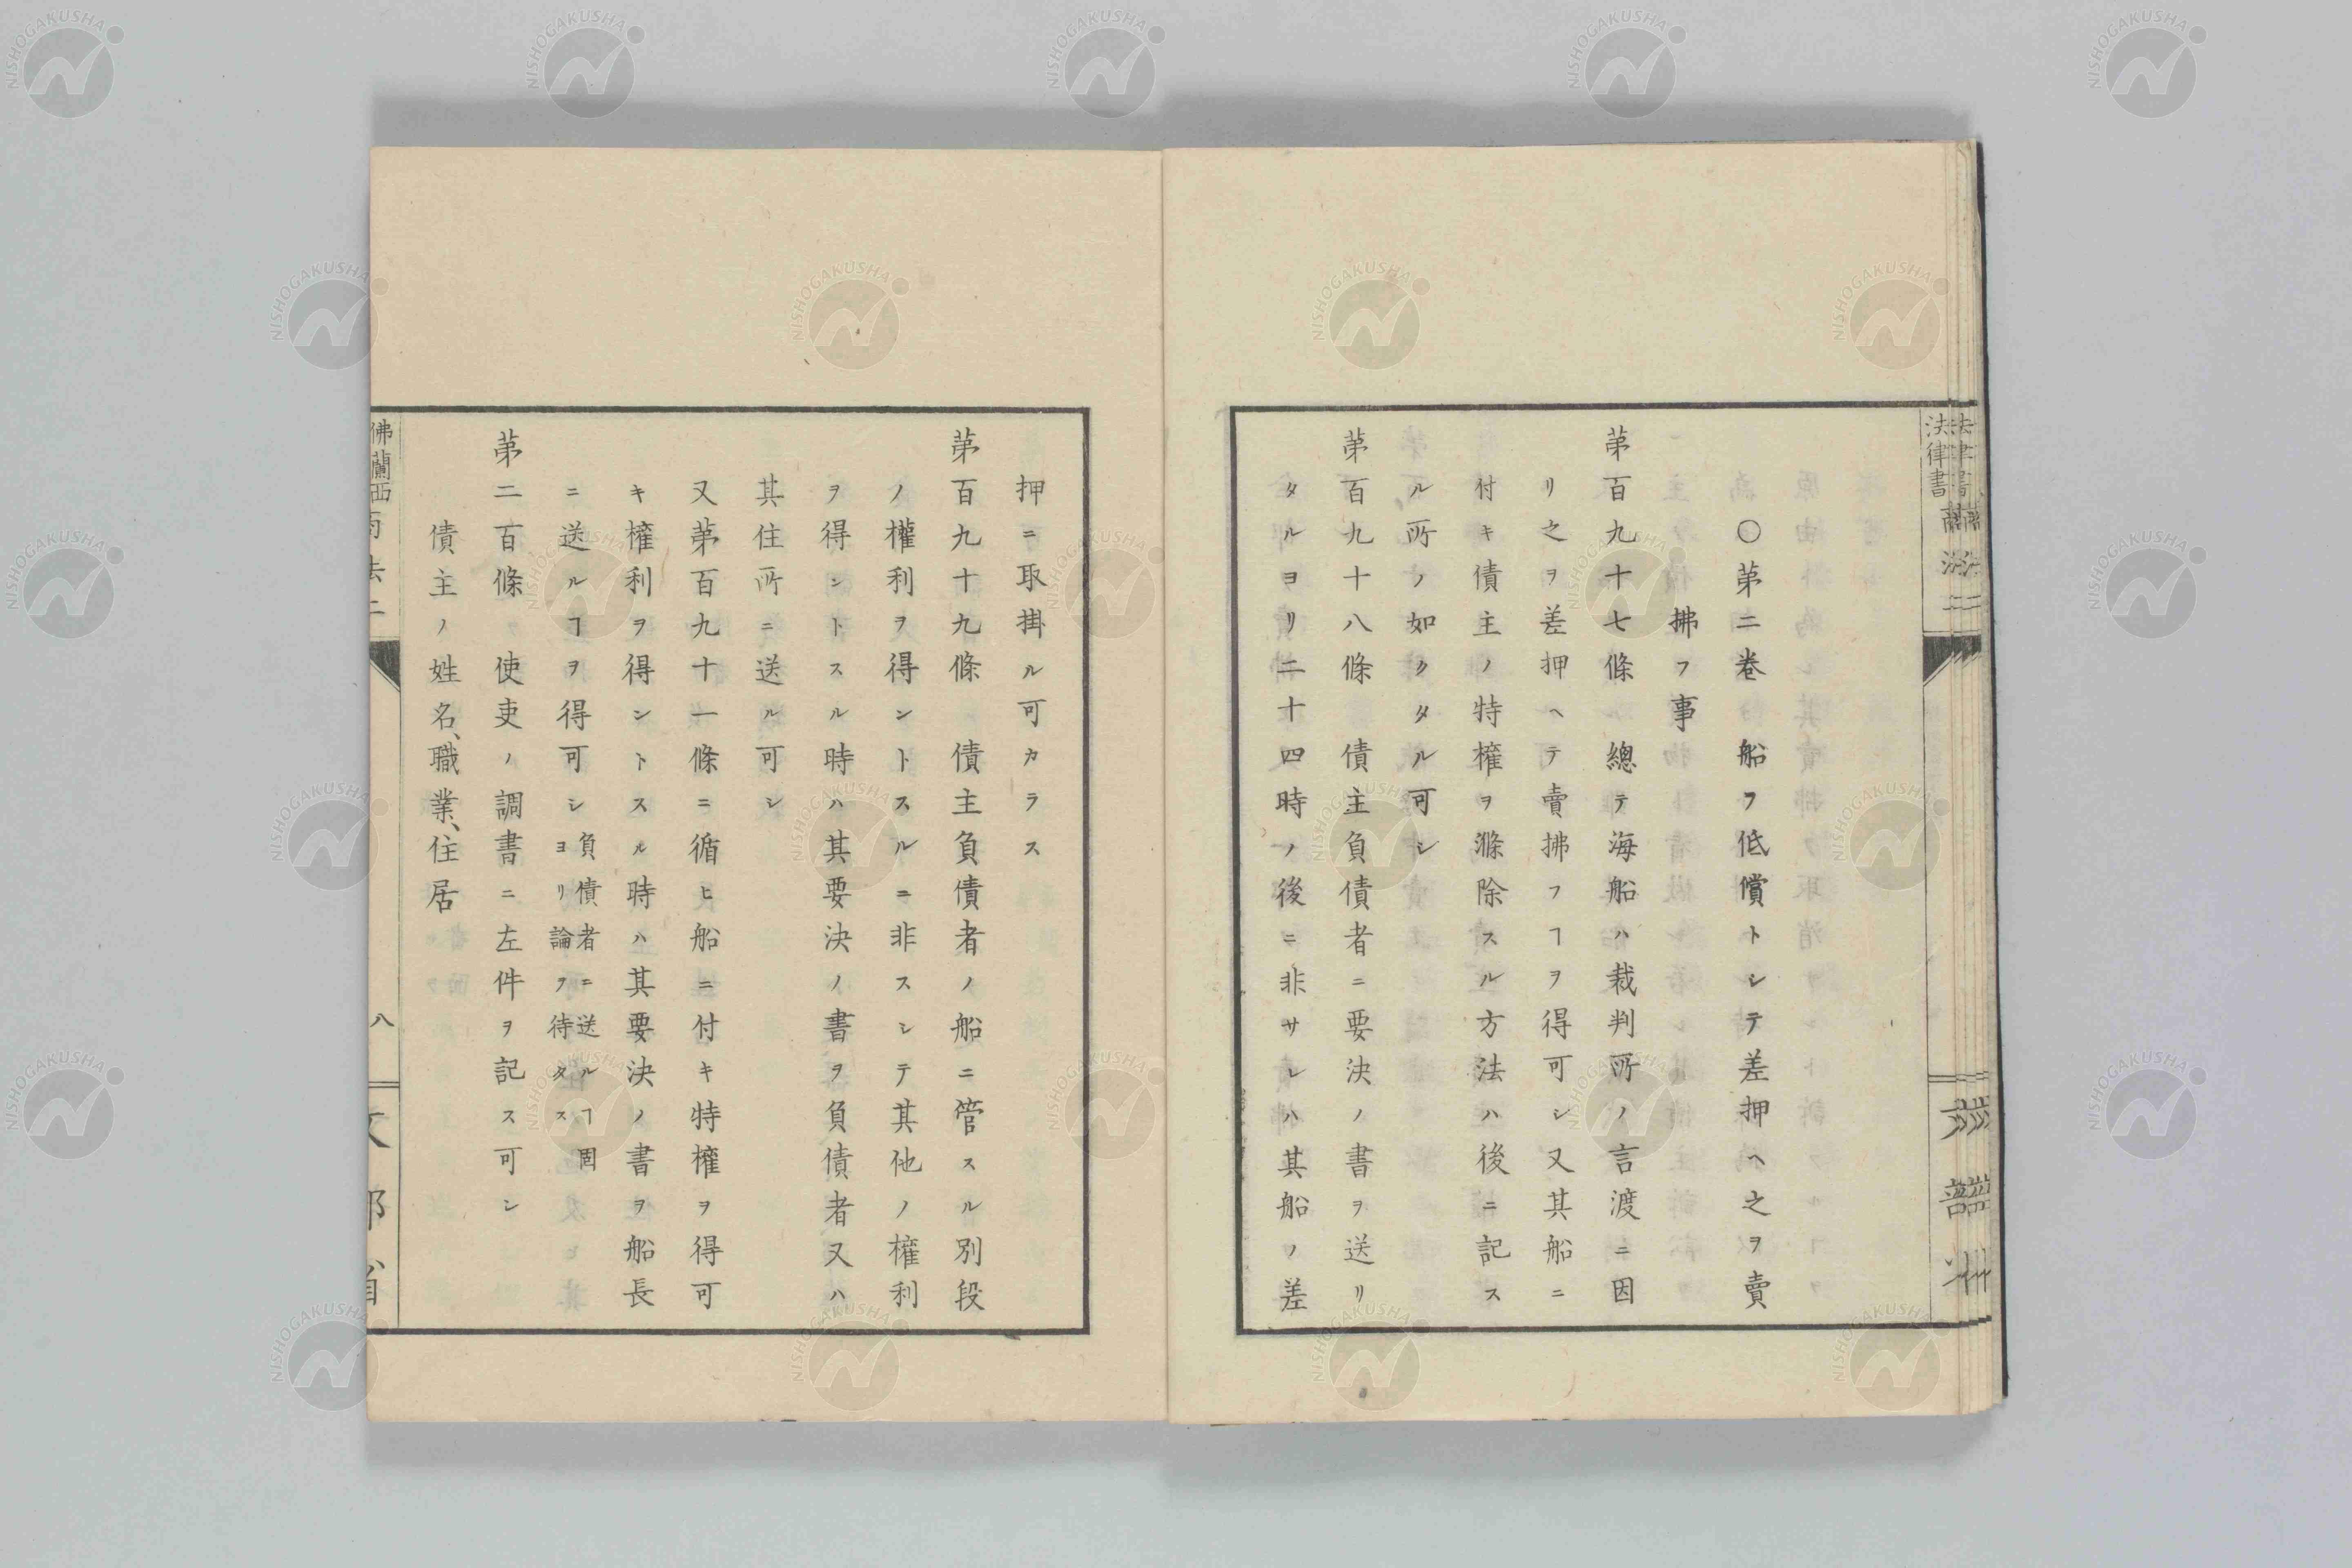 〇第二卷 船ヲ低償トシテ差押ヘ之ヲ賣
拂フ事
第百九十七條 總テ海船ハ裁判所ノ言渡ニ因
リ之ヲ差押ヘテ賣拂フヿヲ得可シ又其船ニ
付キ債主ノ特權ヲ滌除スル方法ハ後ニ記ス
ル所ノ如クタル可シ
第百九十八條 債主負債者ニ要決ノ書ヲ送リ
タルヨリ二十四時ノ後ニ非サレハ其船ノ差
押ニ取掛ル可カラス
第百九十九條 債主負債者ノ船ニ管スル別段
ノ權利ヲ得ントスルニ非スシテ其他ノ權利
ヲ得ントスル時ハ其要決ノ書ヲ負債者又ハ
其住所ニ送ル可シ
又第百九十一條ニ循ヒ船ニ付キ特權ヲ得可
キ權利ヲ得ントスル時ハ其要決ノ書ヲ船長
ニ送ルヿヲ得可シ負債者ニ送ルヿ固
ヨリ論ヲ待タス
第二百條 使吏ノ調書ニ左件ヲ記ス可シ
債主ノ姓名、職業、住居
佛蘭西
八
法律書
NISHOGAKUSHA